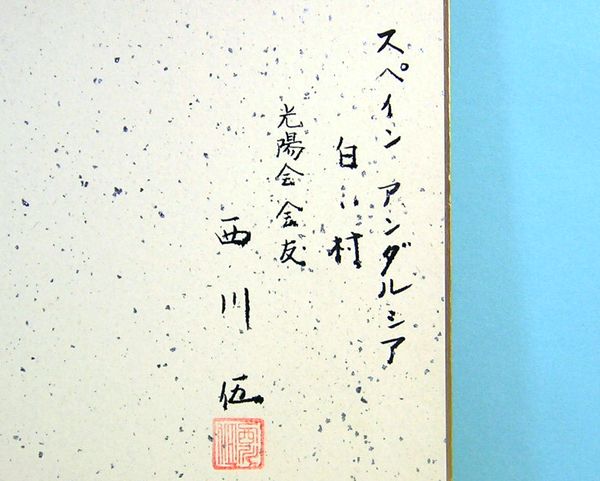 スペイン アンダルシア
白い村
光陽会会友
西川 伍